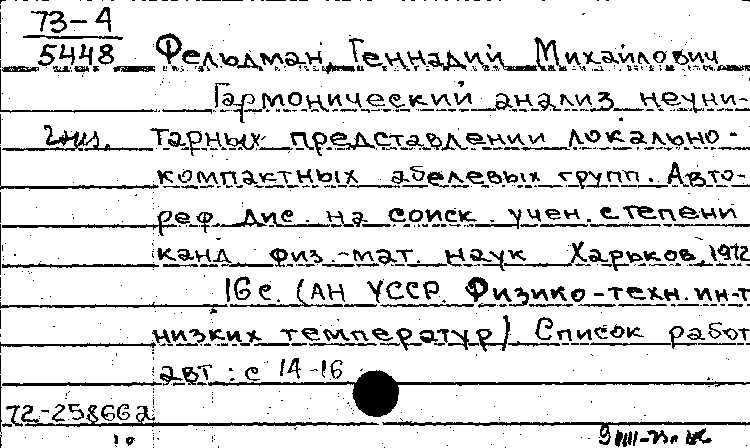 73-4
5448 Фельдман, Геннадий Михайлович
Гармонический анализ неуни-
2 экз. тарных представлении локально-
компактных абелевых групп. Авто-
реф. дис. на соиск. учен. степени
канд. физ.-мат. наук Харьков, 1972
16 с. (АН УССР. Физико-техн. ин-т
низких температур) Список работ
авт.: с 14-16
72-25866а